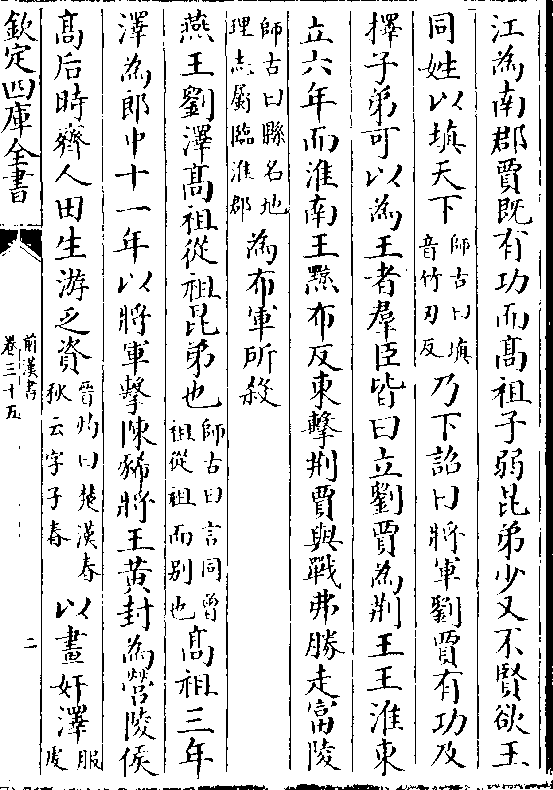 江為南郡賈既有功而髙祖子弱昆弟少又不賢欲王
同姓以填天下師古曰填音竹刃反乃下詔曰將軍劉賈有功及
擇子弟可以為王者羣臣皆曰立劉賈為荆王王淮東
立六年而淮南王黥布反東擊荆賈與戰弗勝走富陵
師古曰縣名地理志屬臨淮郡為布軍所殺
燕王劉澤髙祖從祖昆弟也師古曰言同曾祖從祖而别也髙祖三年
澤為郎中十一年以將軍擊陳豨將王黄封為營陵侯
髙后時齊人田生游乏資晉灼曰楚漢春秋云字子春以畫奸澤服䖍
欽定四庫全書
前漢書
卷三十五
二